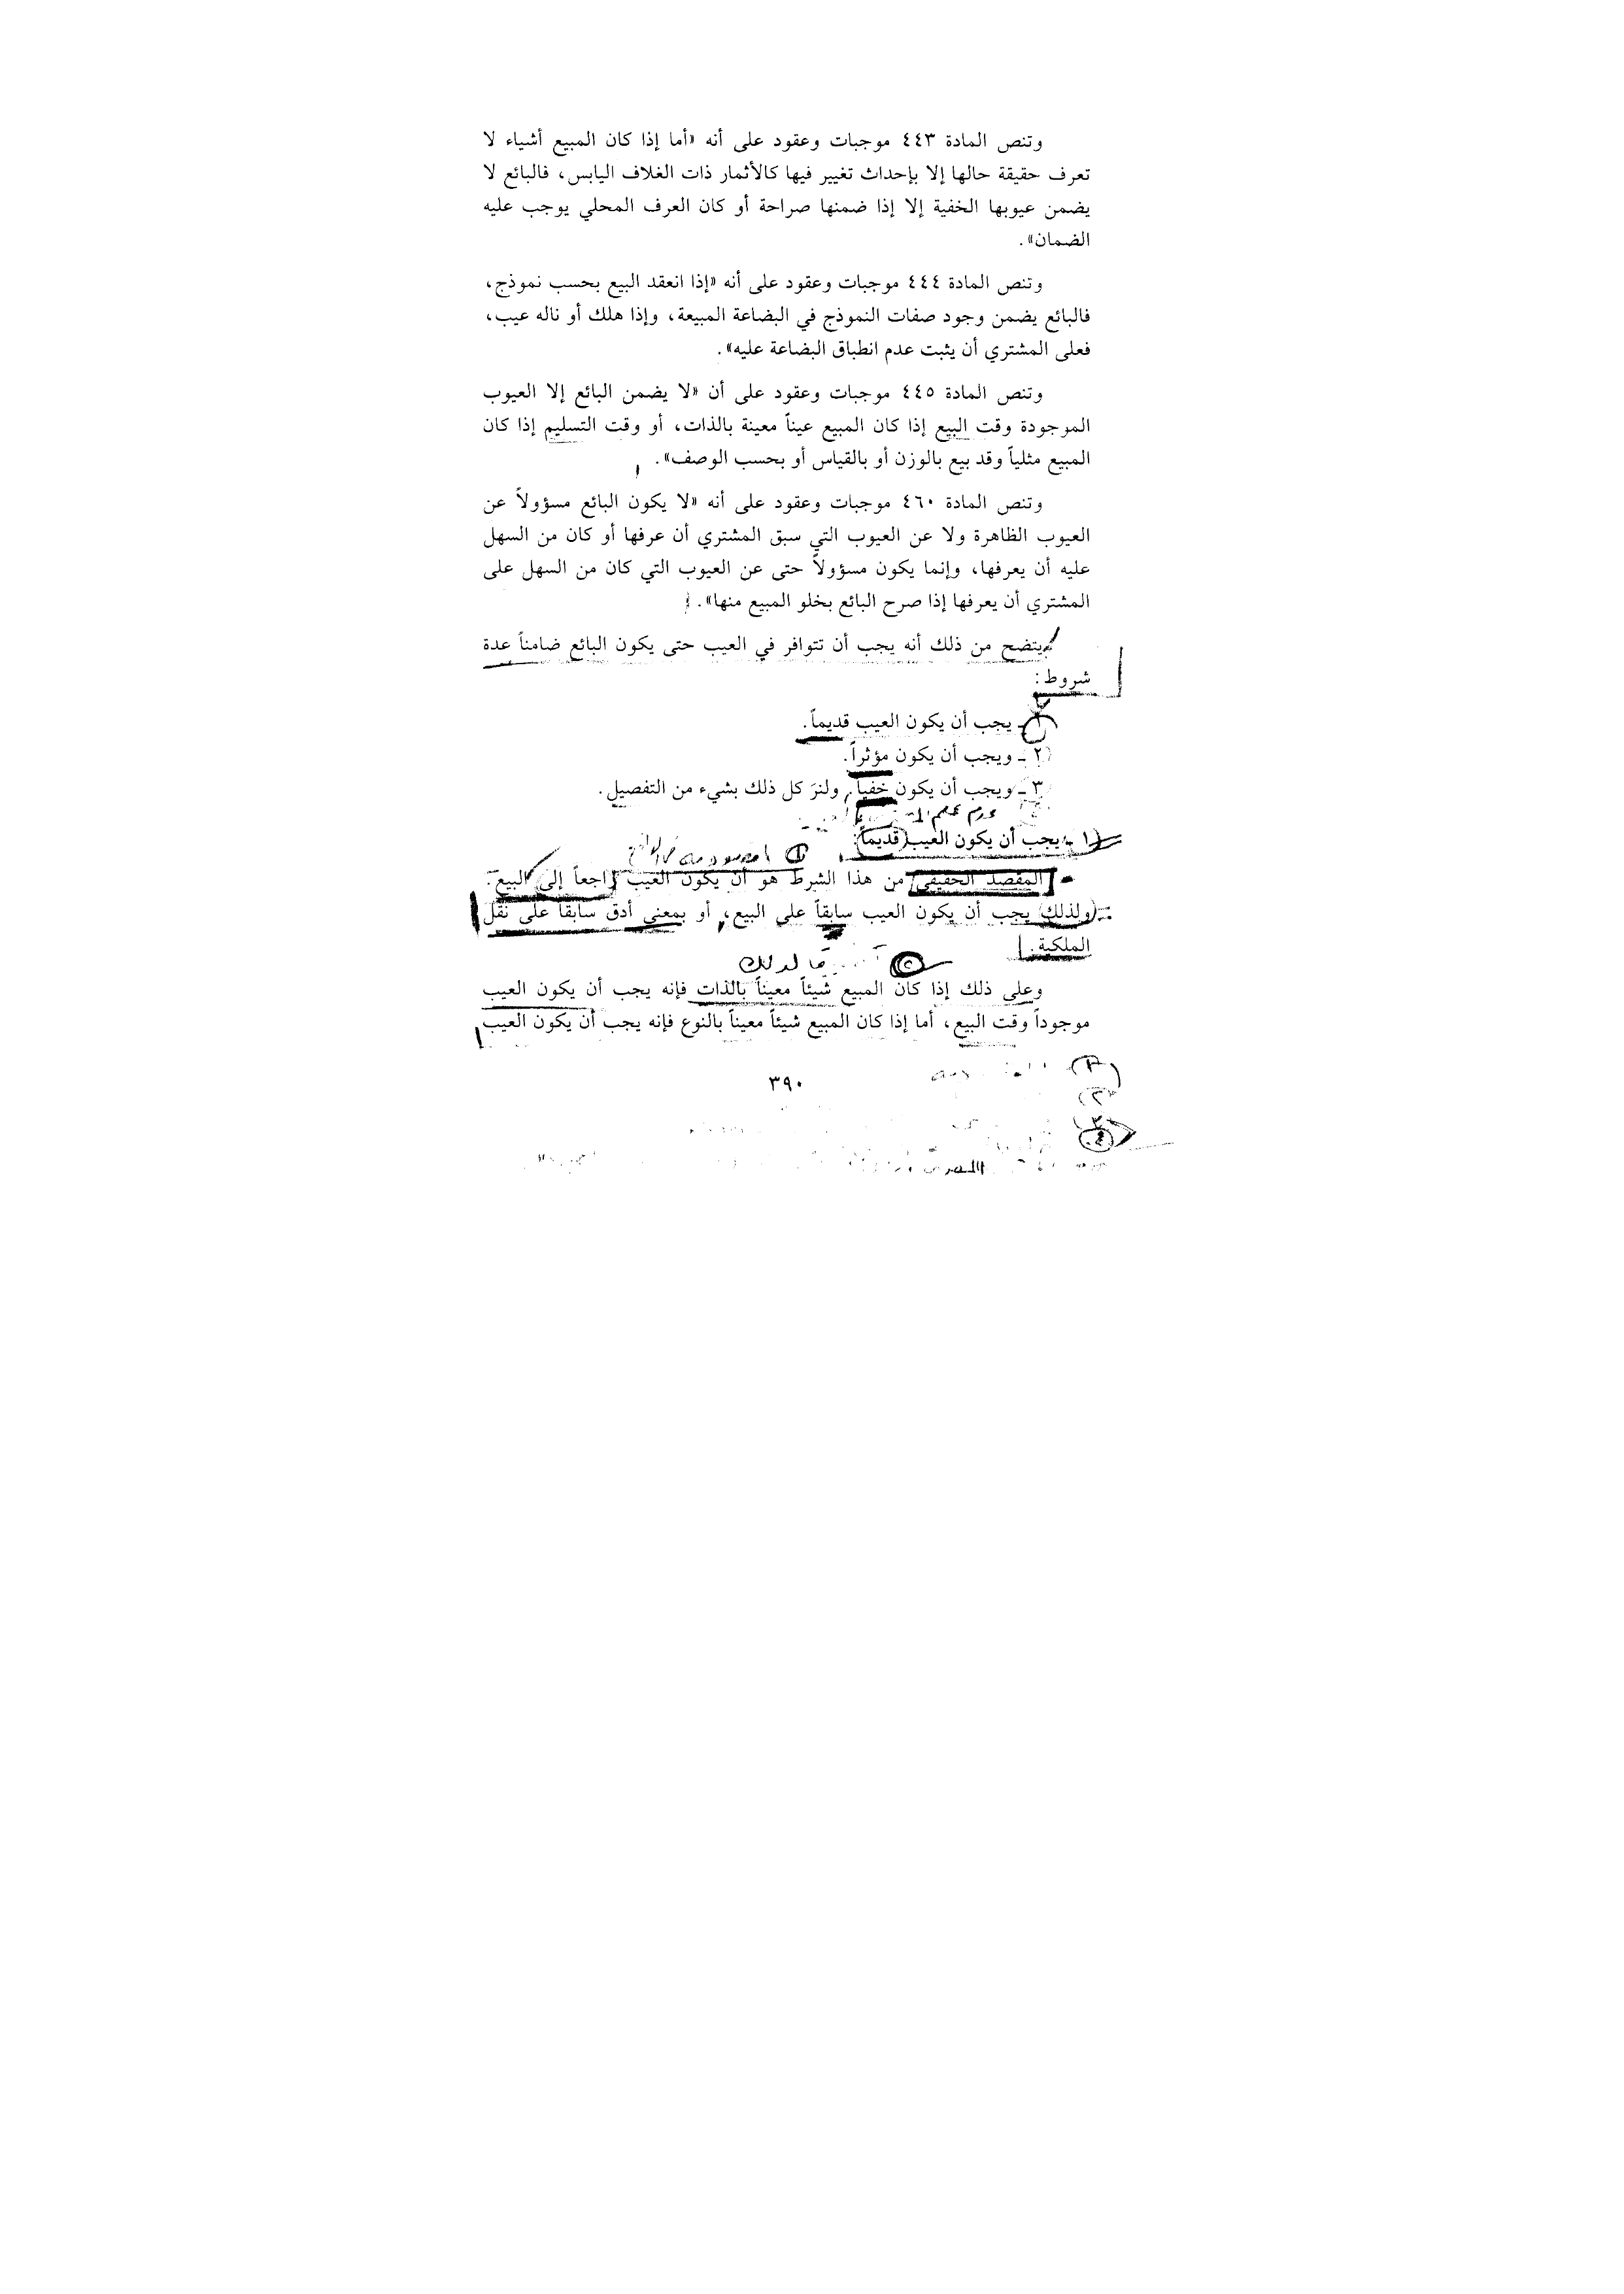 وتنص المادة ٤٤٣ موجبات وعقود على أنه «أما إذا كان المبيع أشياء لا
تعرف حقيقة حالها إلا بإحداث تغيير فيها كالأثمار ذات الغلاف اليابس، فالبائع لا
يضمن عيوبها الخفية إلا إذا ضمنها صراحة أو كان العرف المحلي يوجب عليه
الضمان».
وتنص المادة ٤٤٤ موجبات وعقود على أنه «إذا انعقد البيع بحسب نموذج،
فالبائع يضمن وجود صفات النموذج في البضاعة المبيعة، وإذا هلك أو ناله عيب،
فعلى المشتري أن يثبت عدم انطباق البضاعة عليه».
وتنص المادة ٤٤٥ موجبات وعقود على أن «لا يضمن البائع إلا العيوب
الموجودة وقت البيع إذا كان المبيع عيناً معينة بالذات، أو وقت التسليم إذا كان
المبيع مثلياً وقد بيع بالوزن أو بالقياس أو بحسب الوصف».
وتنص المادة ٤٦٠ موجبات وعقود على أنه «لا يكون البائع مسؤولاً عن
العيوب الظاهرة ولا عن العيوب التي سبق المشتري أن عرفها أو كان من السهل
عليه أن يعرفها، وإنما يكون مسؤولاً حتى عن العيوب التي كان من السهل على
المشتري أن يعرفها إذا صرح البائع بخلو المبيع منها».
يتضح من ذلك أنه يجب أن تتوافر في العيب حتى يكون البائع ضامناً عدة
شروط:
١ ـ يجب أن يكون العيب قديماً.
٢ ـ ويجب أن يكون مؤثراً.
٣ ـ ويجب أن يكون خفياً. ولنرَ كل ذلك بشيء من التفصيل.
عدم علم
١ ـ يجب أن يكون العيب قديماً:
المقصد الحقيقي من هذا الشرط هو أن يكون العيب راجعاً إلى البيع.
ولذلك يجب أن يكون العيب سابقاً على البيع، أو بمعنى أدق سابقاً على نقل
الملكية.
وعلى ذلك إذا كان المبيع شيئاً معيناً بالذات فإنه يجب أن يكون العيب
موجوداً وقت البيع، أما إذا كان المبيع شيئاً معيناً بالنوع فإنه يجب أن يكون العيب
٣٩٠